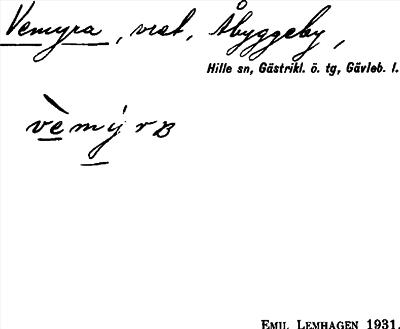 Vemyra, vret, Åbyggeby,
Hille sn, Gästrikl. ö. tg, Gävleb. l.
vèmý rʙ
EMIL LEMHAGEN 1931.